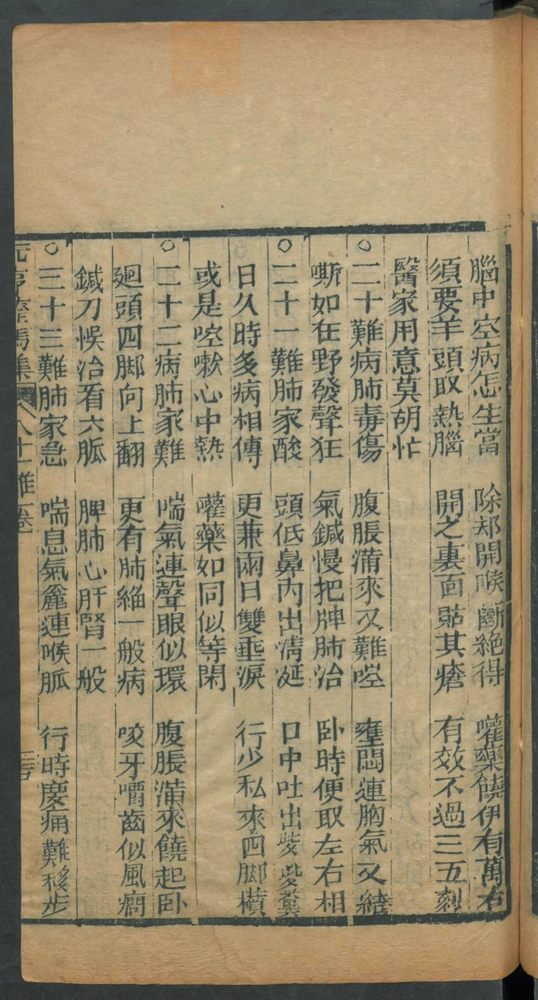 腦中空病怎生當 除却開喉斷絕得 嚾藥饒伊有萬方
須要羊頭取熱腦 開之裏面貼其瘡 有效不過三五刻
醫家用意莫胡忙
○二十難病肺毒傷 腹脹滿來又難啌 壅悶連胸氣又結
嘶如在野發聲狂 氣鍼慢把脾肺治 卧時便取左右相
○二十一難肺家酸 頭低鼻內出清涎 口中吐出
日久時多病相傳 更兼兩日雙垂淚 行少私來四脚橫
或是啌嗽心中熱 嚾藥如同似等閑
○二十二病肺家難 喘氣連聲眼似環 腹脹滿來饒起卧
廻頭四脚向上翻 更有肺絕一般病 咬牙嚼齒似風癎
鍼刀悞治看六脈 脾肺心肝腎一般
○三十三難肺家急 喘息氣麄連喉脈 行時慶痛難移步
元亨療馬集 八十一難 卷